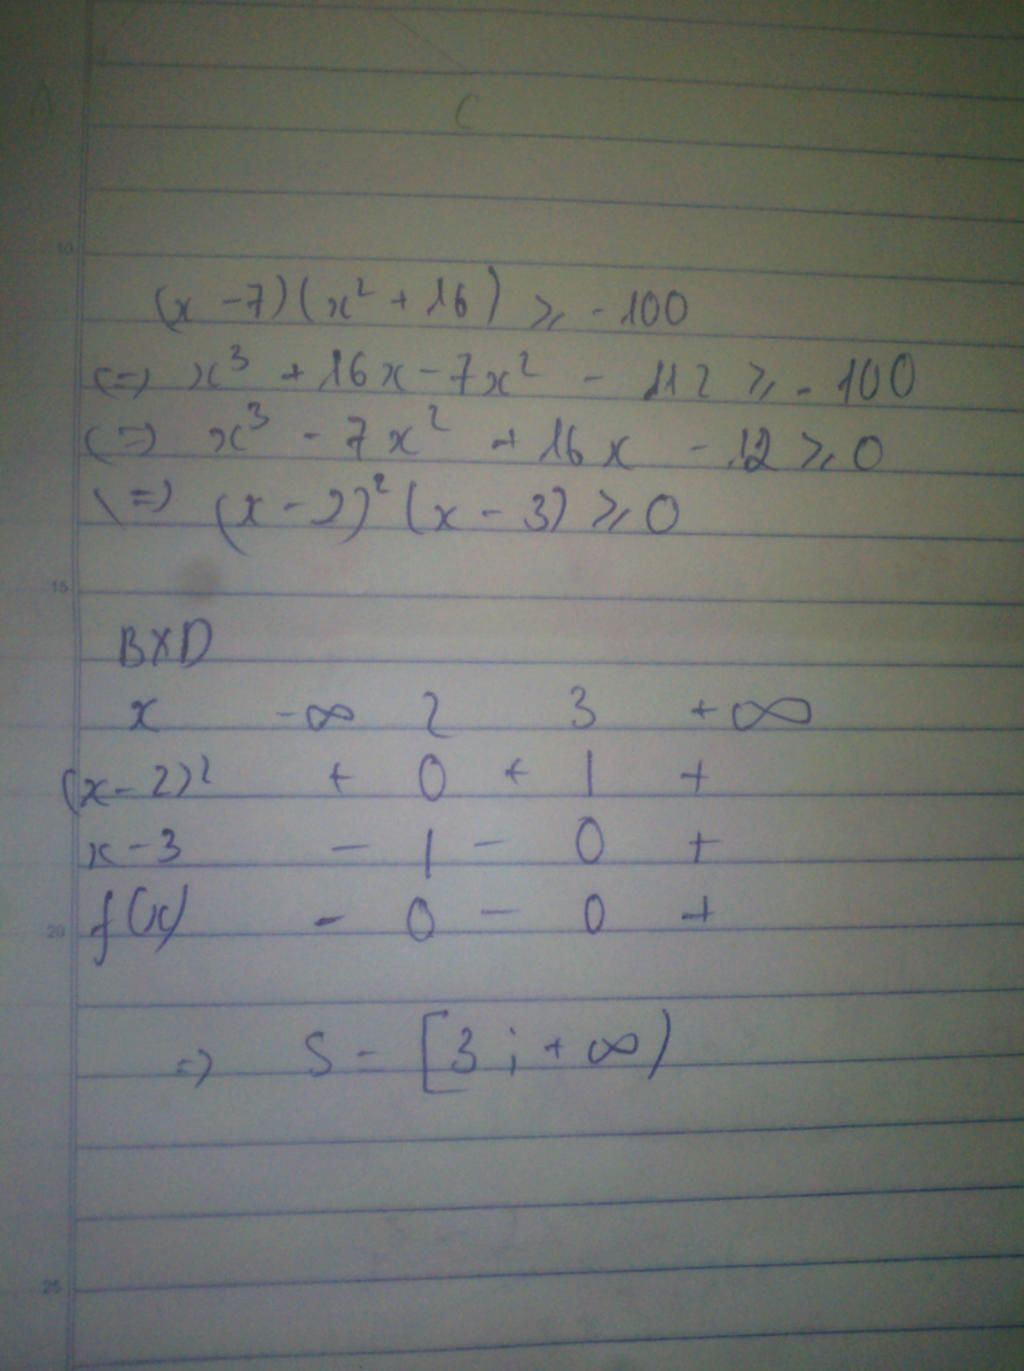 C
10
(x - 7)(x² + 16) ⩾ - 100
(=) x³ + 16x - 7x² - 112 ⩾ - 100
(=) x³ - 7x² + 16x - 12 ⩾ 0
(=) (x - 2)² (x - 3) ⩾ 0
15
BXD
x -∞ 2 3 +∞
(x - 2)² + 0 + | +
x - 3 - | - 0 +
20 f(x) - 0 - 0 +
=) S = [3 ; + ∞)
25